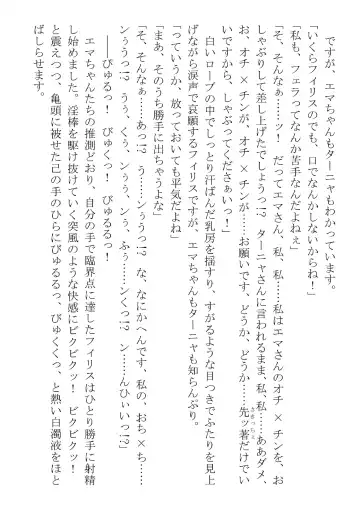 ですが、エマちゃんもターニャもわかっています。
「いくらフィリスのでも、口でなんかしないからね！」
「私も、フェラってなんか苦手なんだよねぇ」
「そ、そんなぁ……ッ！　だってエマさん、私、私……私はエマさんのオチ×チンを、お
しゃぶりして差し上げたでしょうっ!?　ターニャさんに言われるまま、私、私……ああダメ、
お、オチ×チンが、オチ×チンが……お願いです、どうか、どうか……先ッ著だけでい
いですから、しゃぶってくださぁいっ！」
　白いローブの中でしっとり汗ばんだ乳房を揺すり、すがるような目つきでふたりを見上
げながら涙声で哀願するフィリスですが、エマちゃんもターニャも知らんぷり。
「っていうか、放っておいても平気だよね」
「まあ、そのうち勝手に出ちゃうよな」
「そ、そんなぁ……あっ!?　う……ンぅぅっ!?　な、なにかへんです、私の、おち×ち……
ンぅぅっ!?　うぅ、くぅ、ンぅぅ、ンぅ、ふぅ……ンくっ!?　ン……んひぃいっ!?」
――びゅるっ！　びゅくっ！　びゅるるっ！
　エマちゃんたちの推測どおり、自分の手で臨界点に達したフィリスはひとり勝手に射精
し始めました。淫棒を駆け抜けていく突風のような快感にビクビクッ！　ビクビクッ！
と震えつつ、亀頭に被せた己の手のひらにびゅるるっ、びゅくくっ、と熱い白濁液をほと
ばしらせます。